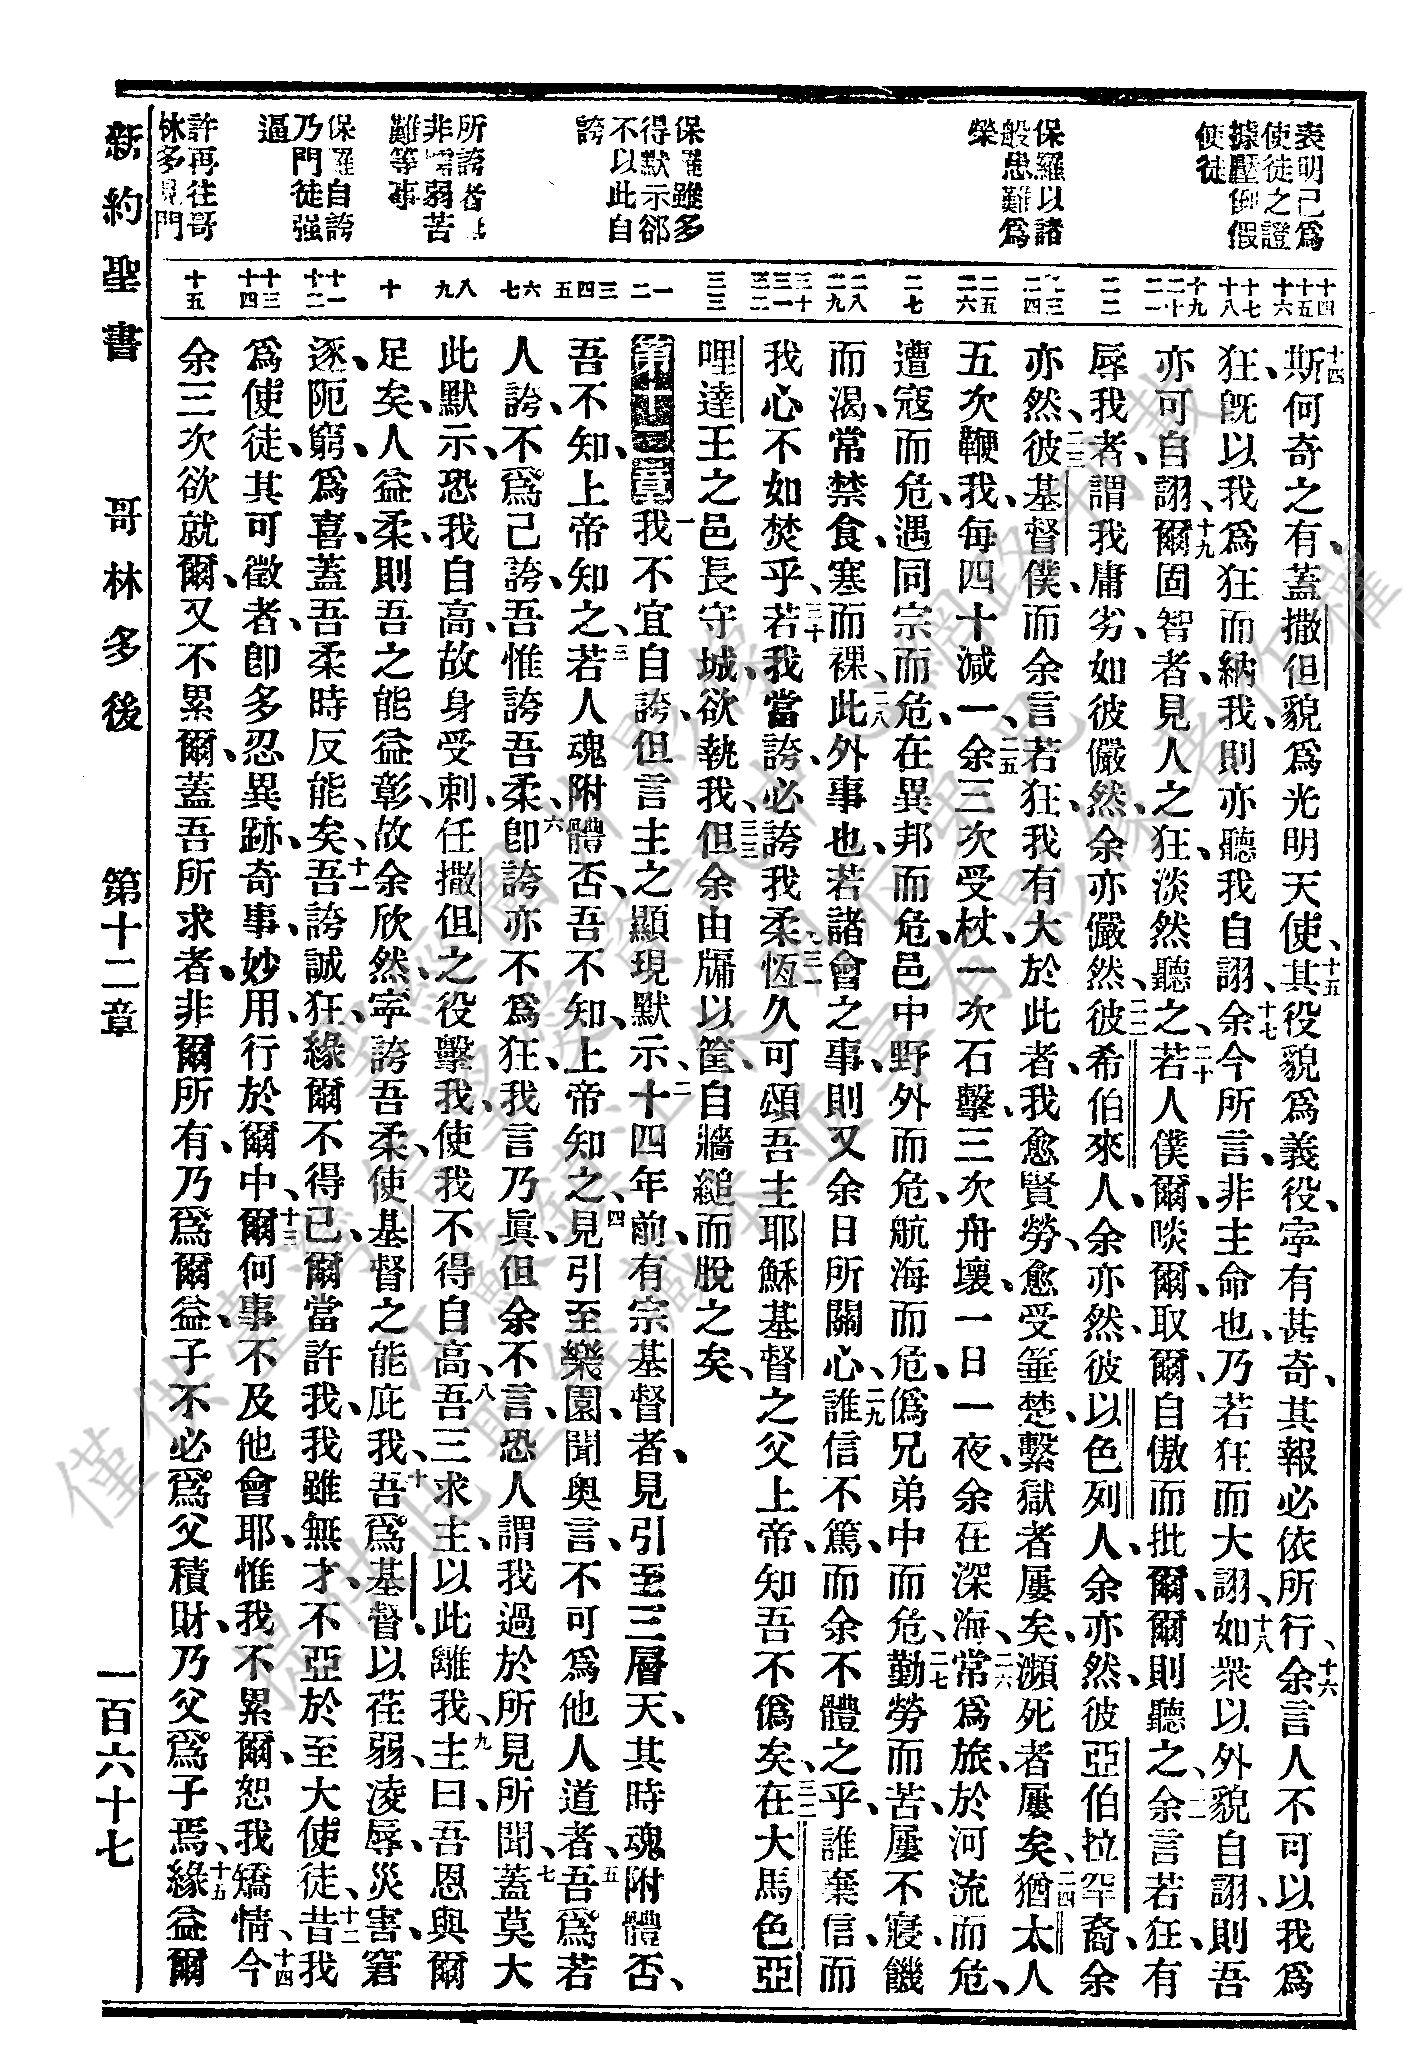 新約聖書 哥林多後 第十二章 一百六十七
表明己爲
使徒之證
據壓倒假
使徒
保羅以諸
般患難爲
榮
保羅雖多
得默示郤
不以此自
誇
所誇者
非懦弱苦
難等事
保羅自誇
乃門徒强
逼
許再往哥
林多見門
十四
十五
十六
十七
十八
十九
二十
二一
二二
二三
二四
二五
二六
二七
二八
二九
三十
三一
三二
三三
一
二
三
四
五
六
七
八
九
十
十一
十二
十三
十四
十五
十四斯何奇之有、蓋撒但貌爲光明天使、十五其役貌爲義役、寧有甚奇、其報必依所行、十六余言人不可以我爲
狂、旣以我爲狂而納我、則亦聽我自詡、十七余今所言、非主命也、乃若狂而大詡、十八如衆以外貌自詡、則吾
亦可自詡、十九爾固智者、見人之狂、淡然聽之、二十若人僕爾、啖爾、取爾、自傲而批爾、爾則聽之、二一余言若狂、有
辱我者、謂我庸劣、如彼儼然、余亦儼然、二二彼希伯來人、余亦然、彼以色列人、余亦然、彼亞伯拉罕裔、余
亦然、二三彼基督僕、而余言若狂、我有大於此者、我愈賢勞、愈受箠楚、繫獄者屢矣、瀕死者屢矣、二四猶太人
五次鞭我、每四十減一、二五余三次受杖、一次石擊、三次舟壞、一日一夜、余在深海、二六常爲旅、於河流而危、
遭寇而危、遇同宗而危、在異邦而危、邑中野外而危、航海而危、僞兄弟中而危、二七勤勞而苦、屢不寢、饑
而渴、常禁食、寒而裸、二八此外事也、若諸會之事、則又余日所關心、二九誰信不篤、而余不體之乎、誰棄信、而
我心不如焚乎、三十若我當誇、必誇我柔、三一恆久可頌、吾主耶穌基督之父上帝、知吾不僞矣、三二在大馬色、亞
哩達王之邑長守城、欲執我、三三但余由牖以筐自牆縋而脫之矣、
第十二章一我不宜自誇、但言主之顯現默示、二十四年前、有宗基督者、見引至三層天、其時魂附體否、
吾不知、上帝知之、三若人魂附體否、吾不知、上帝知之、四見引至樂園、聞奥言、不可爲他人道者、五吾爲若
人誇、不爲己誇、吾惟誇吾柔、六卽誇亦不爲狂、我言乃眞、但余不言、恐人謂我過於所見所聞、七蓋莫大
此默示、恐我自高、故身受刺、任撒但之役擊我、使我不得自高、八吾三求主、以此離我、九主曰、吾恩與爾
足矣、人益柔、則吾之能益彰、故余欣然、寧誇吾柔、使基督之能庇我、十吾爲基督、以荏弱、凌辱、災害、窘
逐、阨窮、爲喜、蓋吾柔時反能矣、十一吾誇誠狂、緣爾不得已、爾當許我、我雖無才、不亞於至大使徒、十二昔我
爲使徒、其可徵者、卽多忍、異跡、奇事、妙用、行於爾中、十三爾何事不及他會耶、惟我不累爾、恕我矯情、十四今
余三次欲就爾、又不累爾、蓋吾所求者、非爾所有、乃爲爾益、子不必爲父積財、乃父爲子焉、十五緣益爾